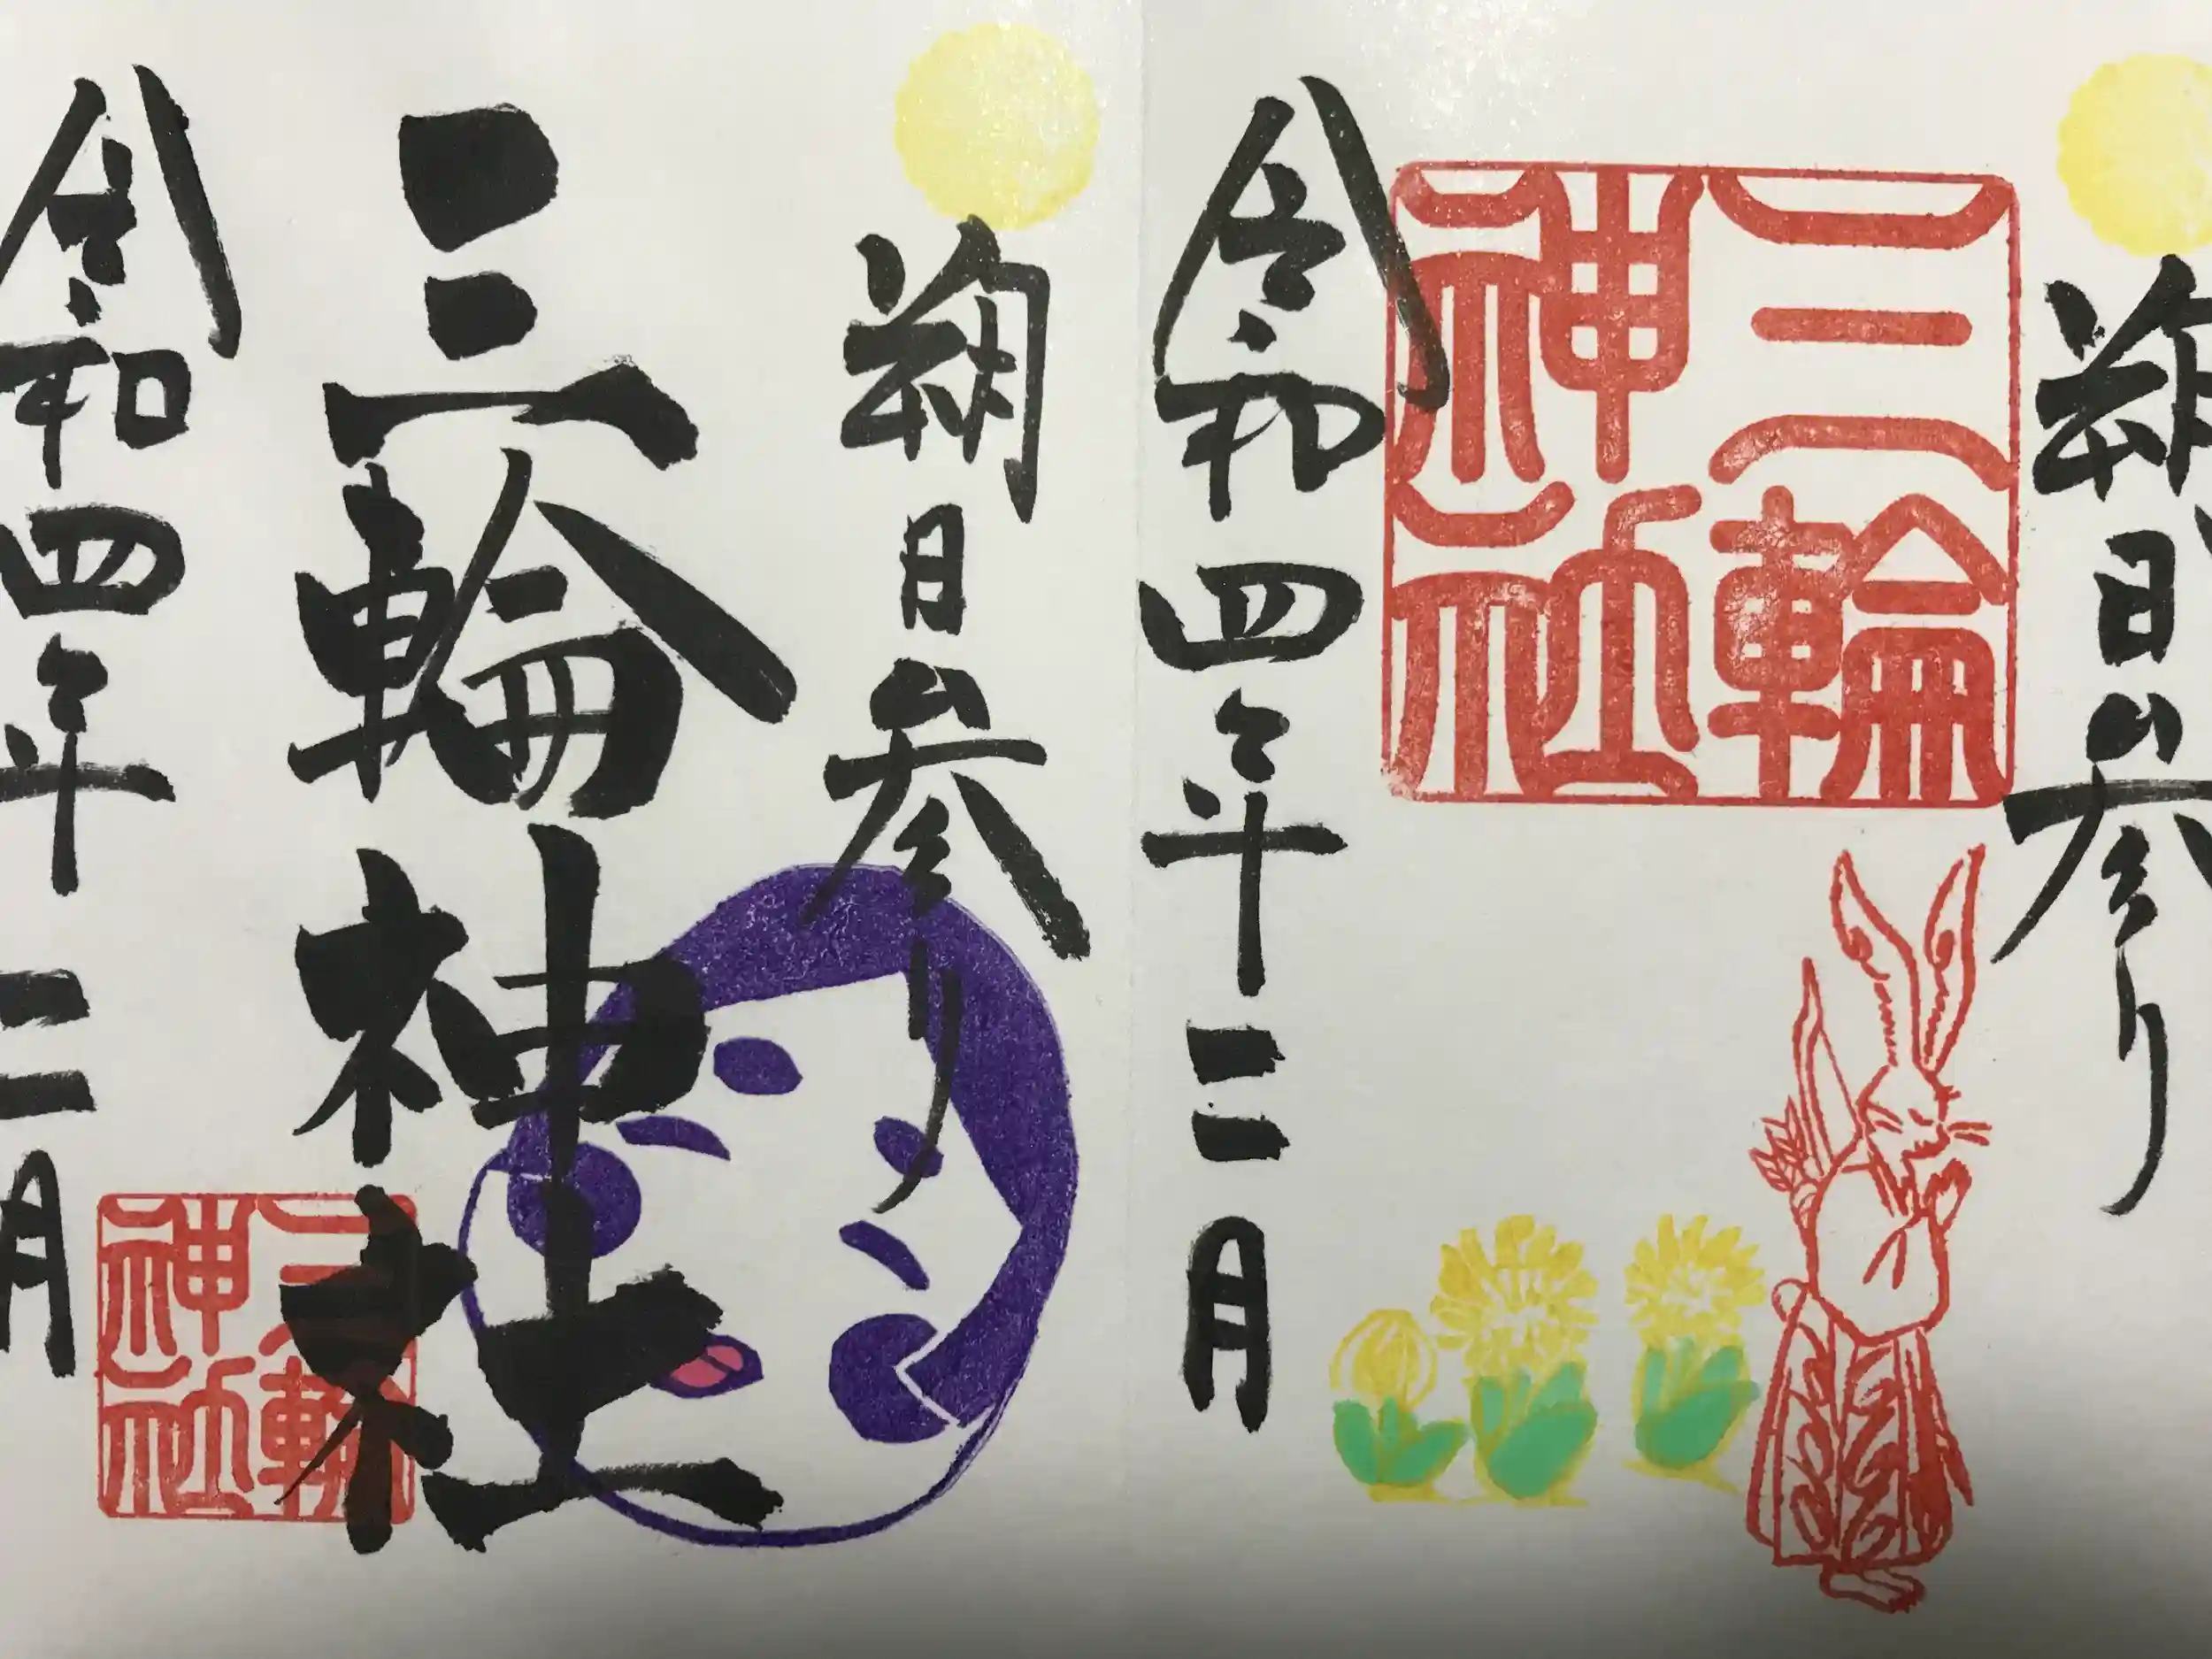 朔日参り
三輪神社
令和四年二月
朔日参り
三輪神社
三輪神社
令和四年二月